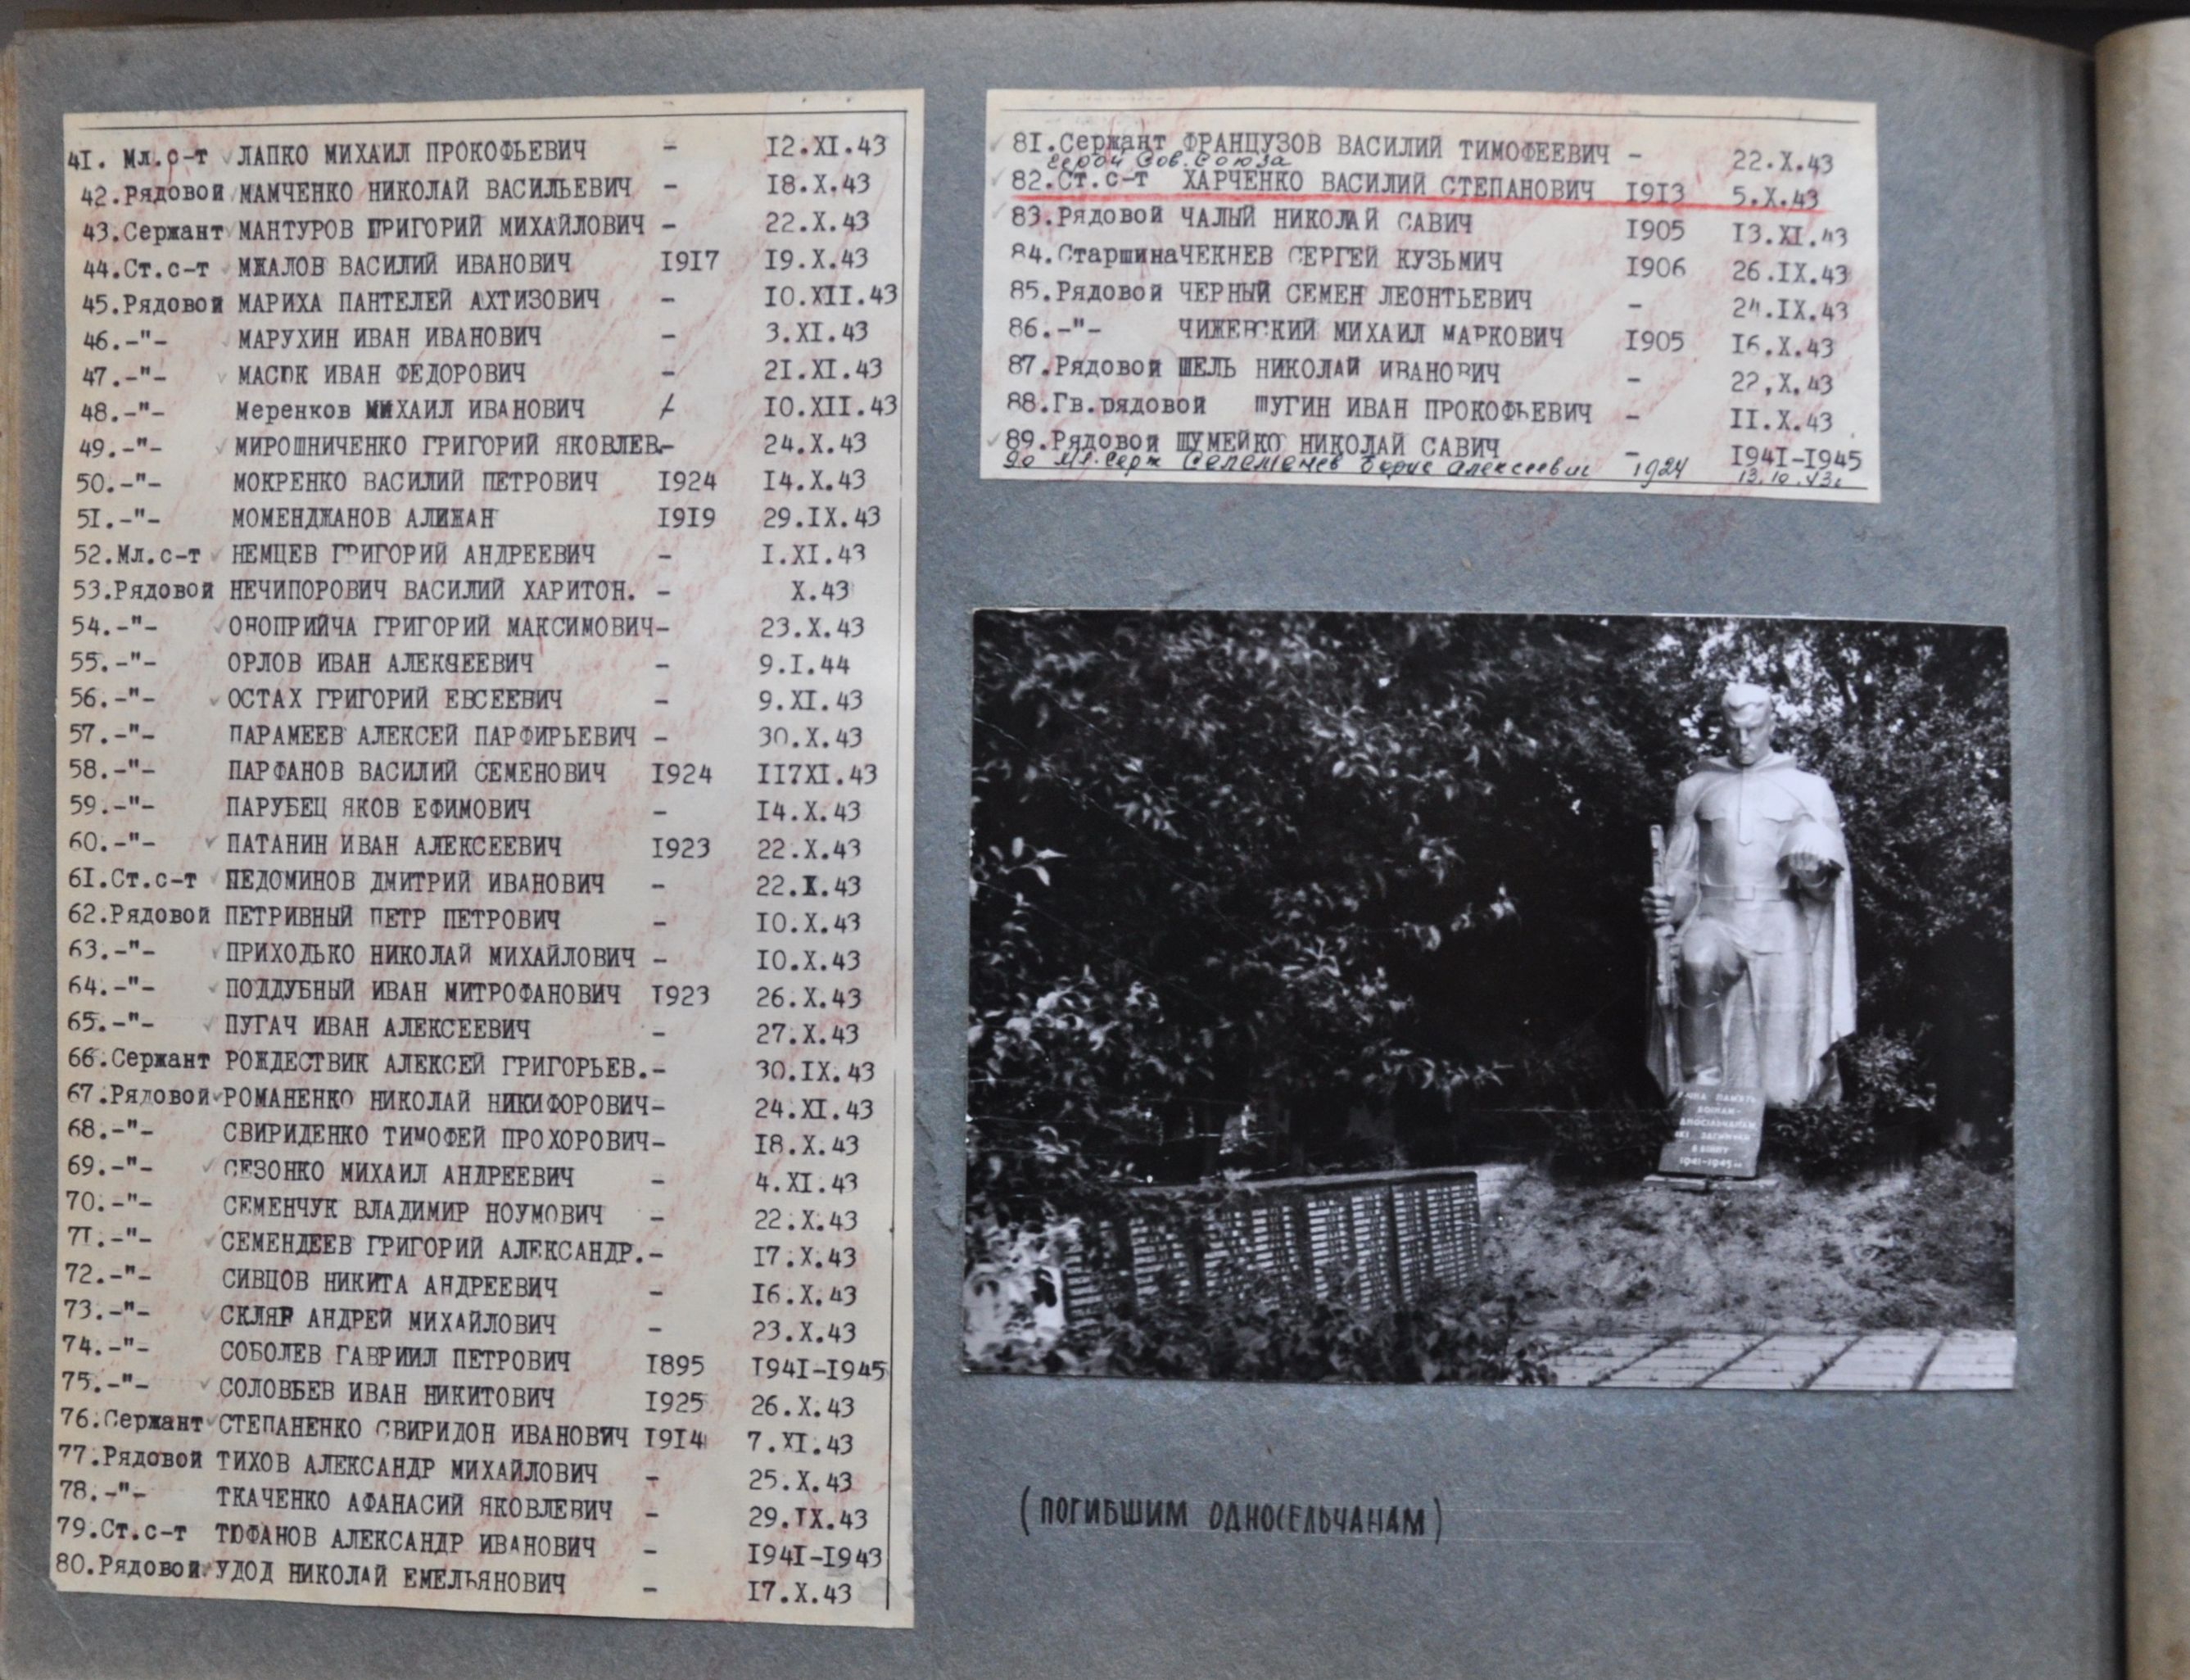 41. Мл.с-т ЛАПКО МИХАИЛ ПРОКОФЬЕВИЧ - I2.XI.43
42.Рядовой МАМЧЕНКО НИКОЛАЙ ВАСИЛЬЕВИЧ - I8.X.43
43.Сержант МАНТУРОВ ГРИГОРИЙ МИХАЙЛОВИЧ - 22.X.43
44.Ст.с-т МЖАЛОВ ВАСИЛИЙ ИВАНОВИЧ I9I7 I9.X.43
45.Рядовой МАРИХА ПАНТЕЛЕЙ АХТИЗОВИЧ - I0.XII.43
46.-"- МАРУХИН ИВАН ИВАНОВИЧ - 3.XI.43
47.-"- МАСЮК ИВАН ФЕДОРОВИЧ - 2I.XI.43
48.-"- Меренков МИХАИЛ ИВАНОВИЧ - I0.XII.43
49.-"- МИРОШНИЧЕНКО ГРИГОРИЙ ЯКОВЛЕВ.- 24.X.43
50.-"- МОКРЕНКО ВАСИЛИЙ ПЕТРОВИЧ I924 I4.X.43
5I.-"- МОМЕНДЖАНОВ АЛИЖАН I9I9 29.IX.43
52.Мл.с-т НЕМЦЕВ ГРИГОРИЙ АНДРЕЕВИЧ - I.XI.43
53.Рядовой НЕЧИПОРОВИЧ ВАСИЛИЙ ХАРИТОН. - X.43
54.-"- ОНОПРИЙЧА ГРИГОРИЙ МАКСИМОВИЧ- 23.X.43
55.-"- ОРЛОВ ИВАН АЛЕКСЕЕВИЧ - 9.I.44
56.-"- ОСТАХ ГРИГОРИЙ ЕВСЕЕВИЧ - 9.XI.43
57.-"- ПАРАМЕЕВ АЛЕКСЕЙ ПАРФИРЬЕВИЧ - 30.X.43
58.-"- ПАРФАНОВ ВАСИЛИЙ СЕМЕНОВИЧ I924 II7XI.43
59.-"- ПАРУБЕЦ ЯКОВ ЕФИМОВИЧ - I4.X.43
60.-"- ПАТАНИН ИВАН АЛЕКСЕЕВИЧ I923 22.X.43
6I.Ст.с-т ПЕДОМИНОВ ДМИТРИЙ ИВАНОВИЧ - 22.X.43
62.Рядовой ПЕТРИВНЫЙ ПЕТР ПЕТРОВИЧ - I0.X.43
63.-"- ПРИХОДЬКО НИКОЛАЙ МИХАЙЛОВИЧ - I0.X.43
64.-"- ПОДДУБНЫЙ ИВАН МИТРОФАНОВИЧ I923 26.X.43
65.-"- ПУГАЧ ИВАН АЛЕКСЕЕВИЧ - 27.X.43
66.Сержант РОЖДЕСТВИК АЛЕКСЕЙ ГРИГОРЬЕВ.- 30.IX.43
67.Рядовой РОМАНЕНКО НИКОЛАЙ НИКИФОРОВИЧ- 24.XI.43
68.-"- СВИРИДЕНКО ТИМОФЕЙ ПРОХОРОВИЧ- I8.X.43
69.-"- СЕЗОНКО МИХАИЛ АНДРЕЕВИЧ - 4.XI.43
70.-"- СЕМЕНЧУК ВЛАДИМИР НОУМОВИЧ - 22.X.43
7I.-"- СЕМЕНДЕЕВ ГРИГОРИЙ АЛЕКСАНДР.- I7.X.43
72.-"- СИВЦОВ НИКИТА АНДРЕЕВИЧ - I6.X.43
73.-"- СКЛЯР АНДРЕЙ МИХАЙЛОВИЧ - 23.X.43
74.-"- СОБОЛЕВ ГАВРИИЛ ПЕТРОВИЧ I895 I94I-I945
75.-"- СОЛОВЬЕВ ИВАН НИКИТОВИЧ I925 26.X.43
76.Сержант СТЕПАНЕНКО СВИРИДОН ИВАНОВИЧ I9I4 7.XI.43
77.Рядовой ТИХОВ АЛЕКСАНДР МИХАЙЛОВИЧ - 25.X.43
78.-"- ТКАЧЕНКО АФАНАСИЙ ЯКОВЛЕВИЧ - 29.IX.43
79.Ст.с-т ТЮФАНОВ АЛЕКСАНДР ИВАНОВИЧ - I94I-I943
80.Рядовой УДОД НИКОЛАЙ ЕМЕЛЬЯНОВИЧ - I7.X.43
8I.Сержант ФРАНЦУЗОВ ВАСИЛИЙ ТИМОФЕЕВИЧ - 22.X.43
Герой Сов. Союза
82.Ст.с-т ХАРЧЕНКО ВАСИЛИЙ СТЕПАНОВИЧ I9I3 5.X.43
83.Рядовой ЧАЛЫЙ НИКОЛАЙ САВИЧ I905 I3.XI.43
84.Старшина ЧЕКНЕВ СЕРГЕЙ КУЗЬМИЧ I906 26.IX.43
85.Рядовой ЧЕРНЫЙ СЕМЕН ЛЕОНТЬЕВИЧ - 24.IX.43
86.-"- ЧИЖЕВСКИЙ МИХАИЛ МАРКОВИЧ I905 I6.X.43
87.Рядовой ШЕЛЬ НИКОЛАЙ ИВАНОВИЧ - 22,X.43
88.Гв.рядовой ШУГИН ИВАН ПРОКОФЬЕВИЧ - II.X.43
89.Рядовой ШУМЕЙКО НИКОЛАЙ САВИЧ - I94I-I945
90 Мл.серж Селеменев Борис Алексеевич 1924 13.10.43г
ПАМ'ЯТЬ
ВОЇНАМ-
ЗАГИНУЛИ
В ВІЙНУ
1941-1945
(ПОГИБШИМ ОДНОСЕЛЬЧАНАМ)